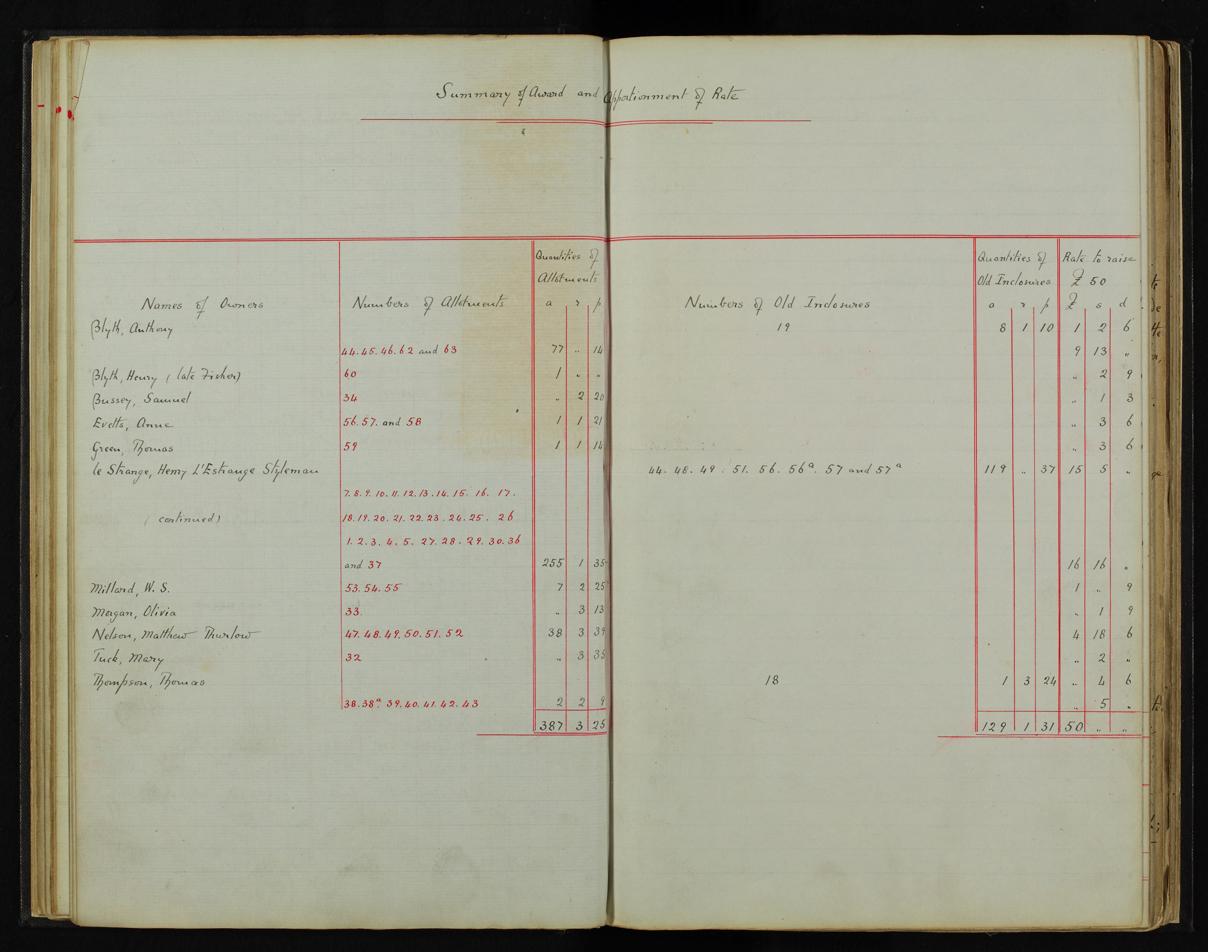 Summary of Award and Apportionment of Rate
Quantities of Quantities of Rate to raise
Allotments Old Inclosures £ 50
Names of Owners Numbers of Allotments a r p Numbers of Old Inclosures a r p £ s d
Blyth, Anthony 19 8 1 10 1 2 6
44. 45. 46. 62 and 63 77 .. 14 9 13 "
Blyth, Henry (late Fisher) 60 1 " " " 2 9
Bussey, Samuel 34 " 2 20 " 1 3
Evetts, Anne 56. 57. and 58 1 1 21 " 3 6
Green, Thomas 59 1 1 14 " 3 6
le Strange, Henry L'Estrange Styleman 44. 48. 49. 51. 56. 56ª. 57 and 57ª 119 .. 37 15 5 "
7. 8. 9. 10. 11. 12. 13. 14. 15. 16. 17.
(continued) 18. 19. 20. 21. 22. 23. 24. 25. 26
1. 2. 3. 4. 5. 27. 28. 29. 30. 36
and 37 255 1 35 16 16 "
Millard, W. S. 53. 54. 55 7 2 25 1 .. 9
Morgan, Olivia 33. " 3 13 " 1 9
Nelson, Matthew Thurlow 47. 48. 49. 50. 51. 52 38 3 39 4 18 6
Tuck, Mary 32 " 3 35 " 2 "
Thompson, Thomas 18 1 3 24 " 4 6
38. 38ª. 39. 40. 41. 42. 43 2 2 9 " 5 "
387 3 25 129 1 31 50 " "